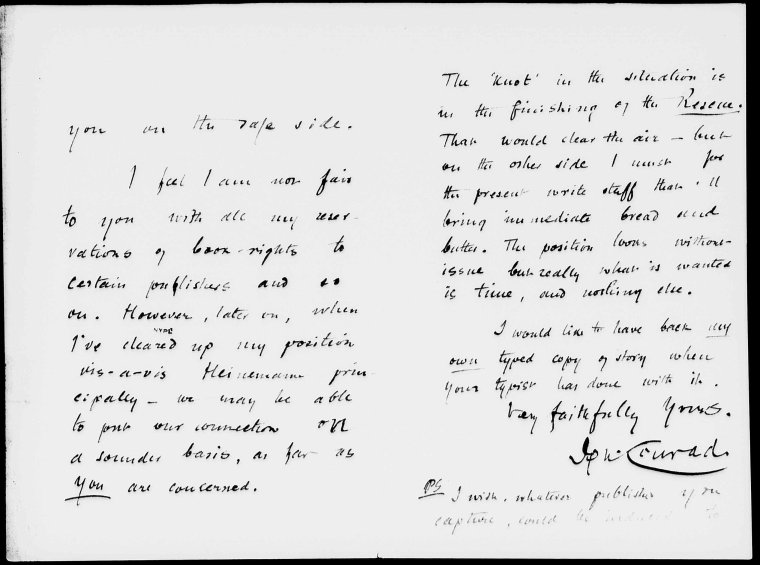 you on the safe side.
I feel I am not fair
to you with all my reser-
vations of book-rights to
certain publishers and so
on. However, later on, when
I've cleared up my position
vis-a-vis Heinemann prin-
cipally – we may be able
to put our connection on
a sounder basis, as far as
You are concerned.
The 'knot' in the situation is
in the finishing of the Rescue.
That would clear the air – but
on the other side I must for
the present write stuff that'll
bring immediate bread and
butter. The position looks without
issue but really what is wanted
is time, and nothing else.
I would like to have back my
own typed copy of story when
your typist has done with it.
Very faithfully Yours.
Jph Conrad.
PS I wish, whatever publisher you
capture, could be induced to